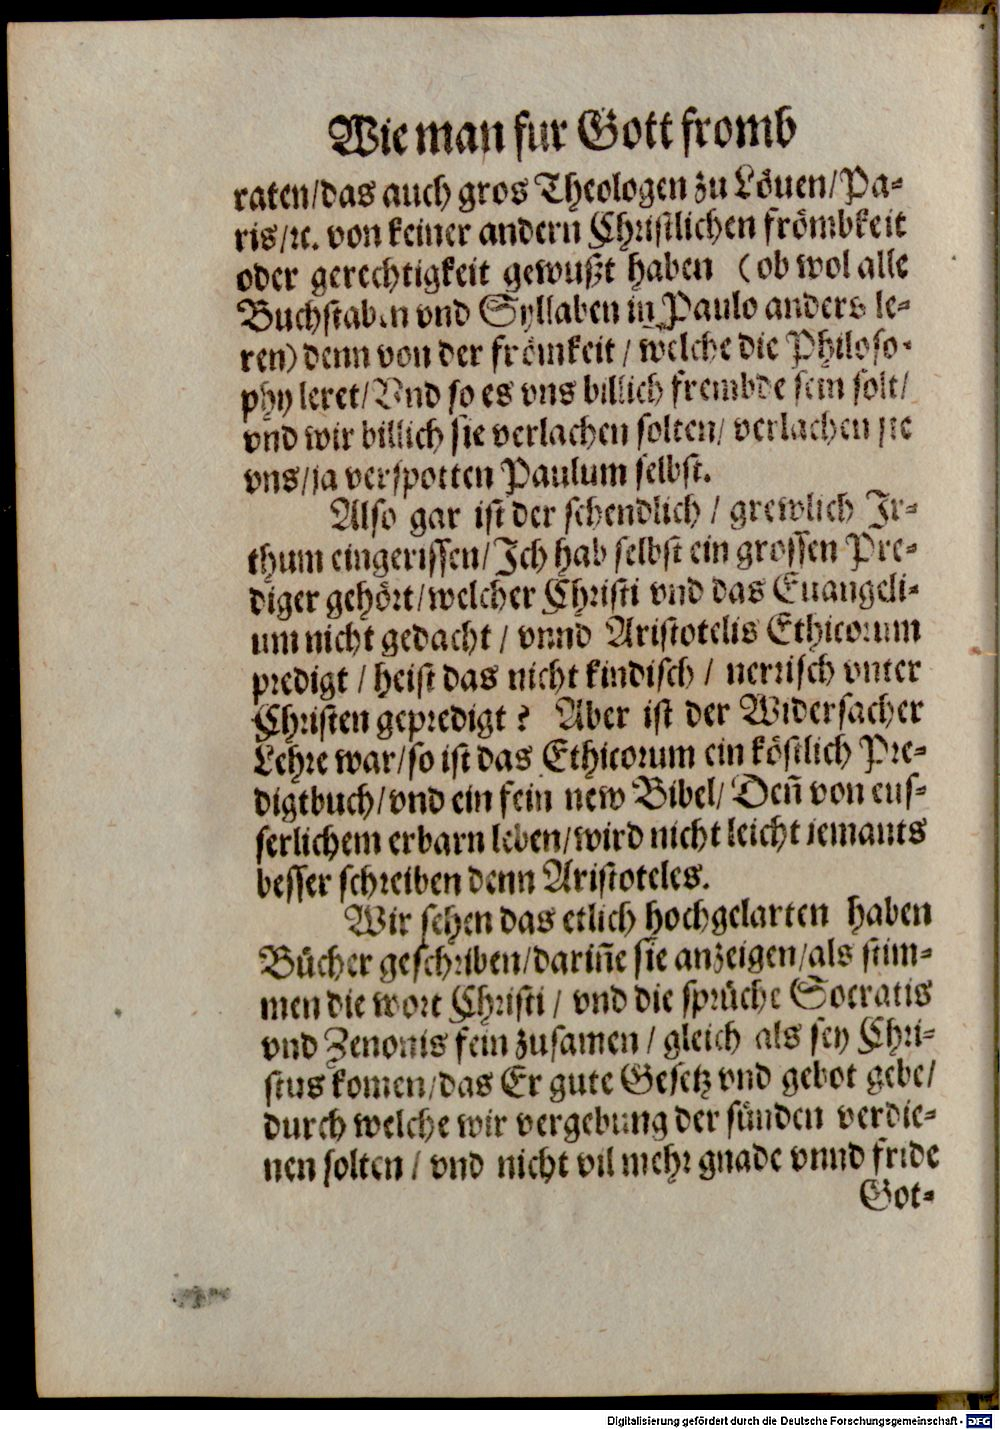 Wie man fur Gott fromb
raten/das auch gros Theologen zu Löuen/Pa-
ris/ꝛc. von keiner andern Christlichen frömbkeit
oder gerechtigkeit gewußt haben (ob wol alle
Buchstaben vnd Syllaben in Paulo anders le-
ren) denn von der frömkeit/welche die Philoso-
phy leret/Vnd so es vns billich frembde sein solt/
vnd wir billich sie verlachen solten/verlachen sie
vns/ja verspotten Paulum selbst.
Also gar ist der schendlich/grewlich Ir-
thum eingerissen/Ich hab selbst ein grossen Pre-
diger gehört/welcher Christi vnd das Euangeli-
um nicht gedacht/vnnd Aristotelis Ethicorum
predigt/heist das nicht kindisch/nerrisch vnter
Christen gepredigt? Aber ist der Widersacher
Lehre war/so ist das Ethicorum ein köstlich Pre-
digtbuch/vnd ein fein new Bibel/Deñ von eus-
serlichem erbarn leben/wird nicht leicht jemants
besser schreiben denn Aristoteles.
Wir sehen das etlich hochgelarten haben
Bücher geschriben/dariñe sie anzeigen/als stim-
men die wort Christi/vnd die sprüche Socratis
vnd Zenonis fein zusamen/gleich als sey Chri-
stus komen/das Er gute Gesetz vnd gebot gebe/
durch welche wir vergebung der sünden verdie-
nen solten/vnd nicht vil mehr gnade vnnd fride
Got-
Digitalisierung gefördert durch die Deutsche Forschungsgemeinschaft - DFG